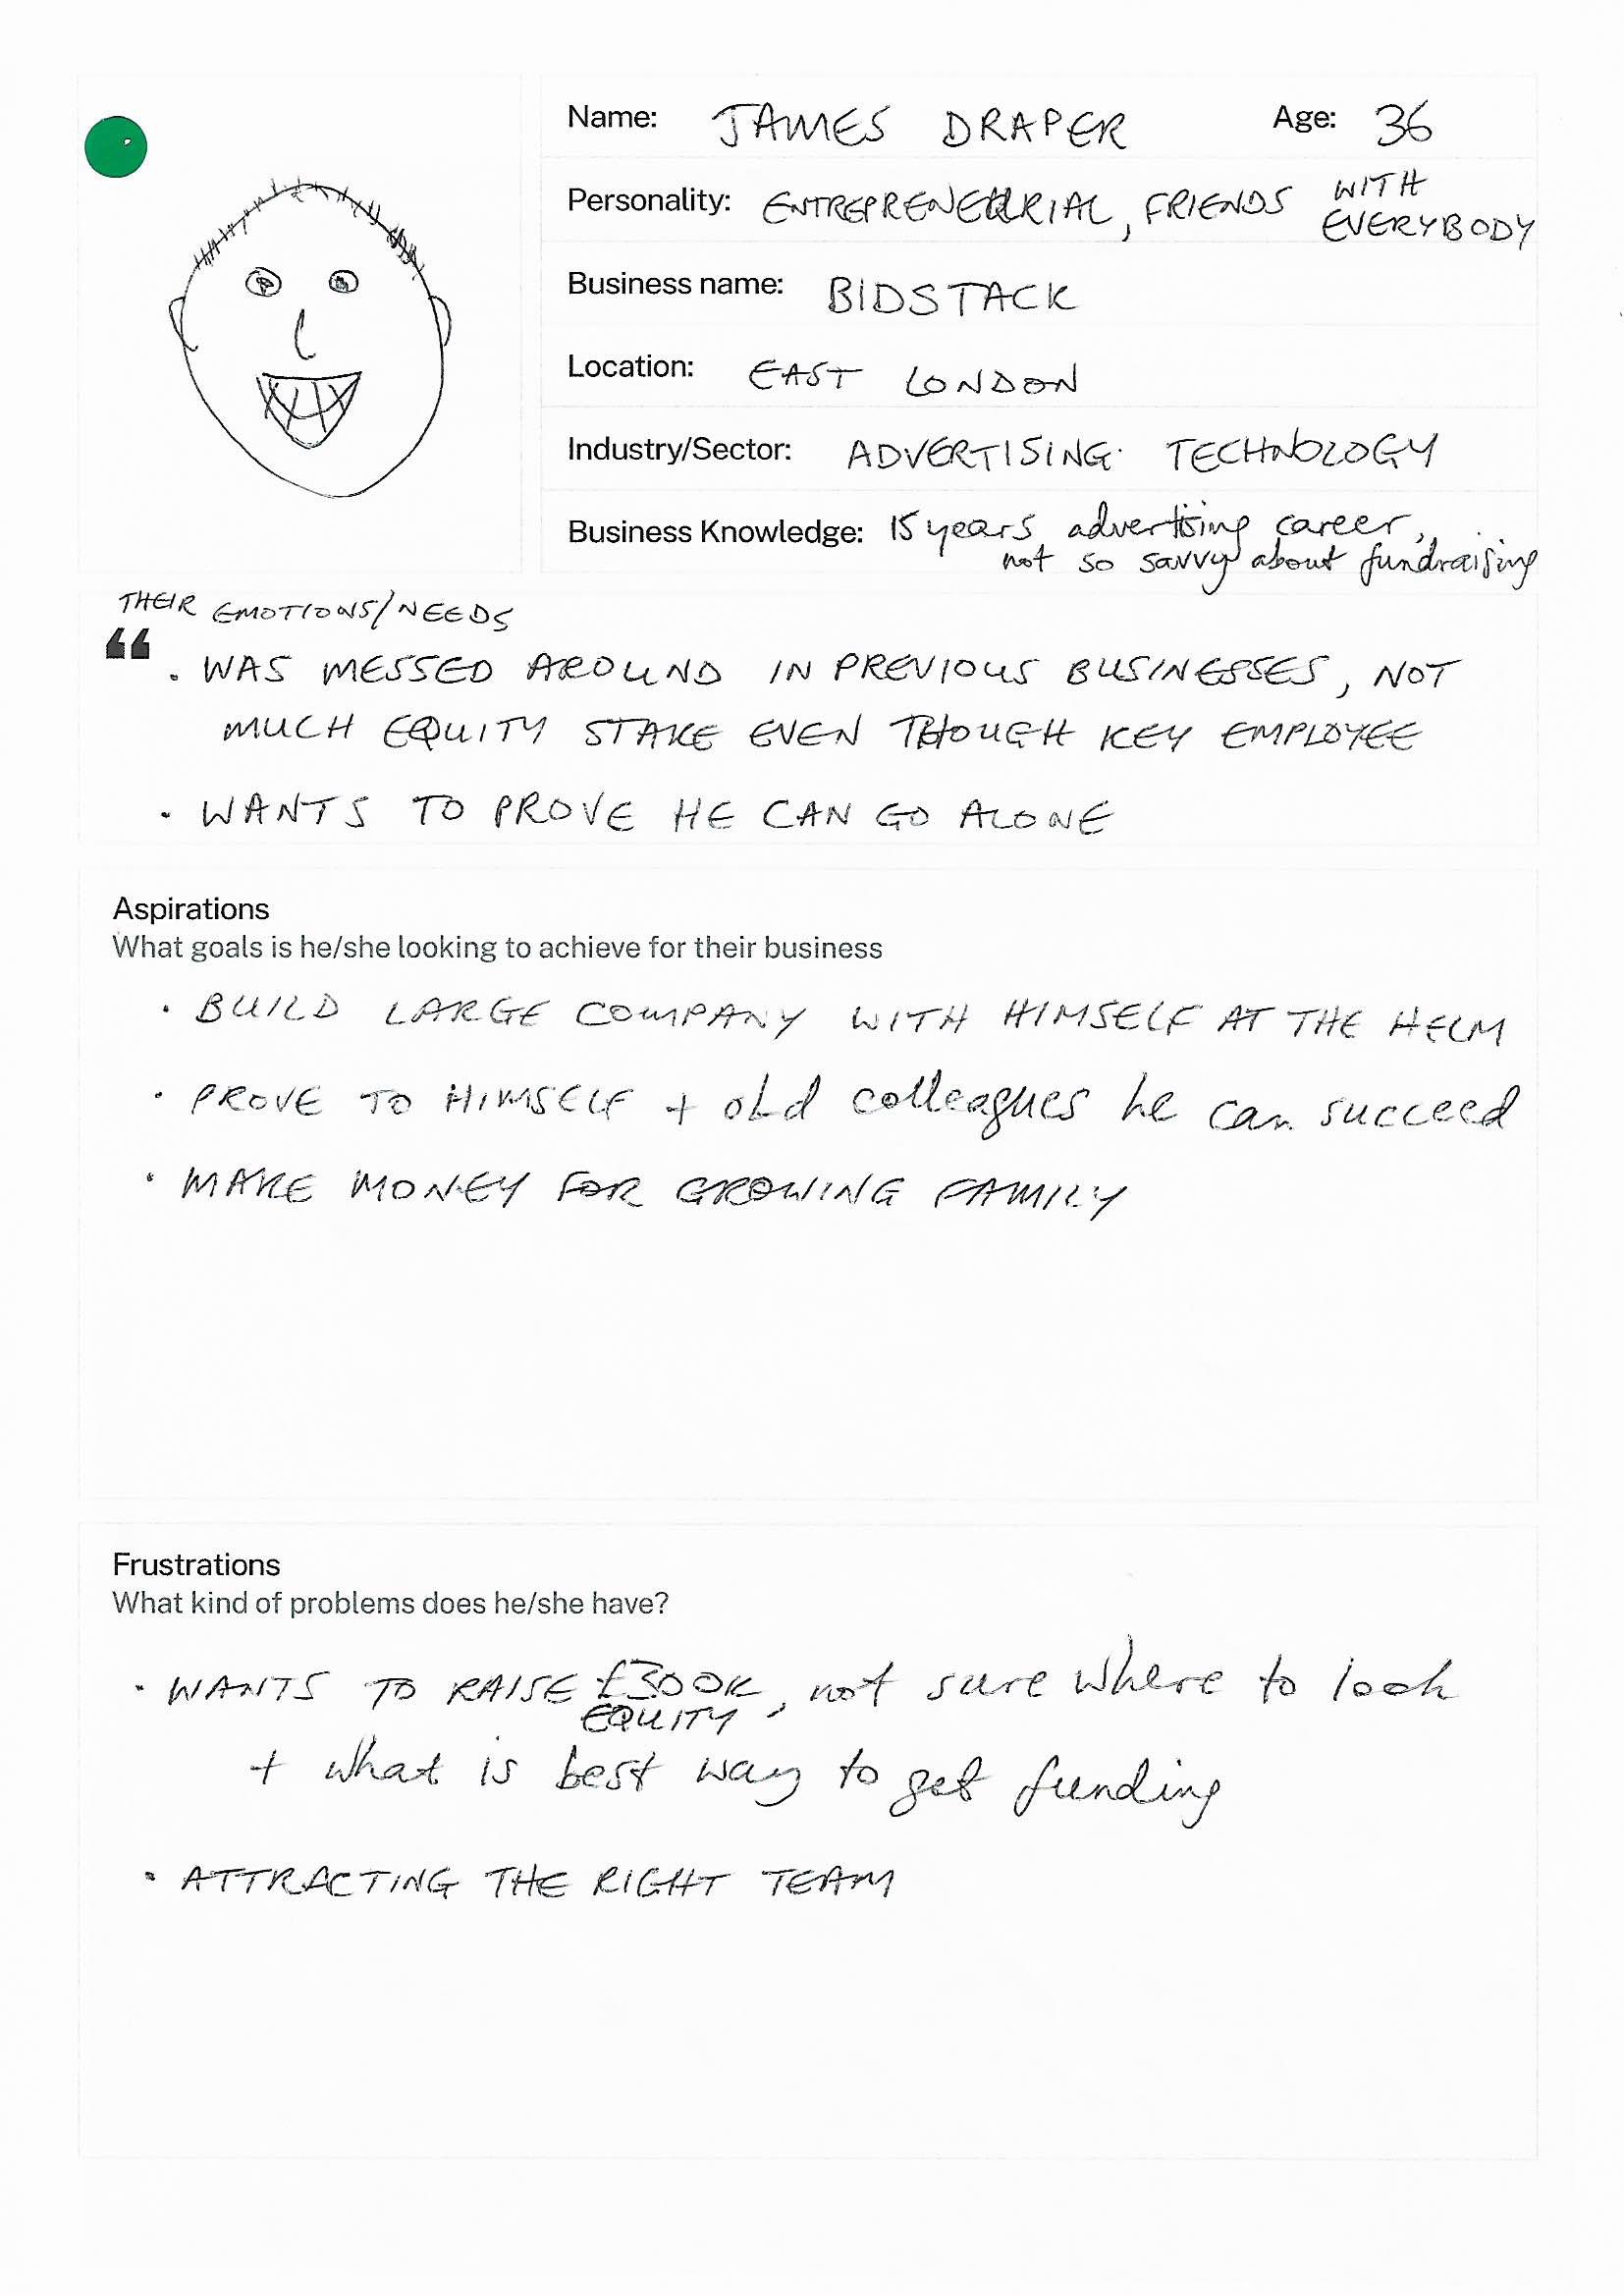 Name: JAMES DRAPER Age: 36
Personality: ENTREPRENEURIAL, FRIENDS WITH
EVERYBODY
Business name: BIDSTACK
Location: EAST LONDON
Industry/Sector: ADVERTISING TECHNOLOGY
Business Knowledge: 15 years advertising career,
not so savvy about fundraising
THEIR EMOTIONS/NEEDS
“
• WAS MESSED AROUND IN PREVIOUS BUSINESSES, NOT
MUCH EQUITY STAKE EVEN THOUGH KEY EMPLOYEE
• WANTS TO PROVE HE CAN GO ALONE
Aspirations
What goals is he/she looking to achieve for their business
• BUILD LARGE COMPANY WITH HIMSELF AT THE HELM
• PROVE TO HIMSELF + old colleagues he can succeed
• MAKE MONEY FOR GROWING FAMILY
Frustrations
What kind of problems does he/she have?
• WANTS TO RAISE £300K, not sure where to look
EQUITY
+ what is best way to get funding
• ATTRACTING THE RIGHT TEAM